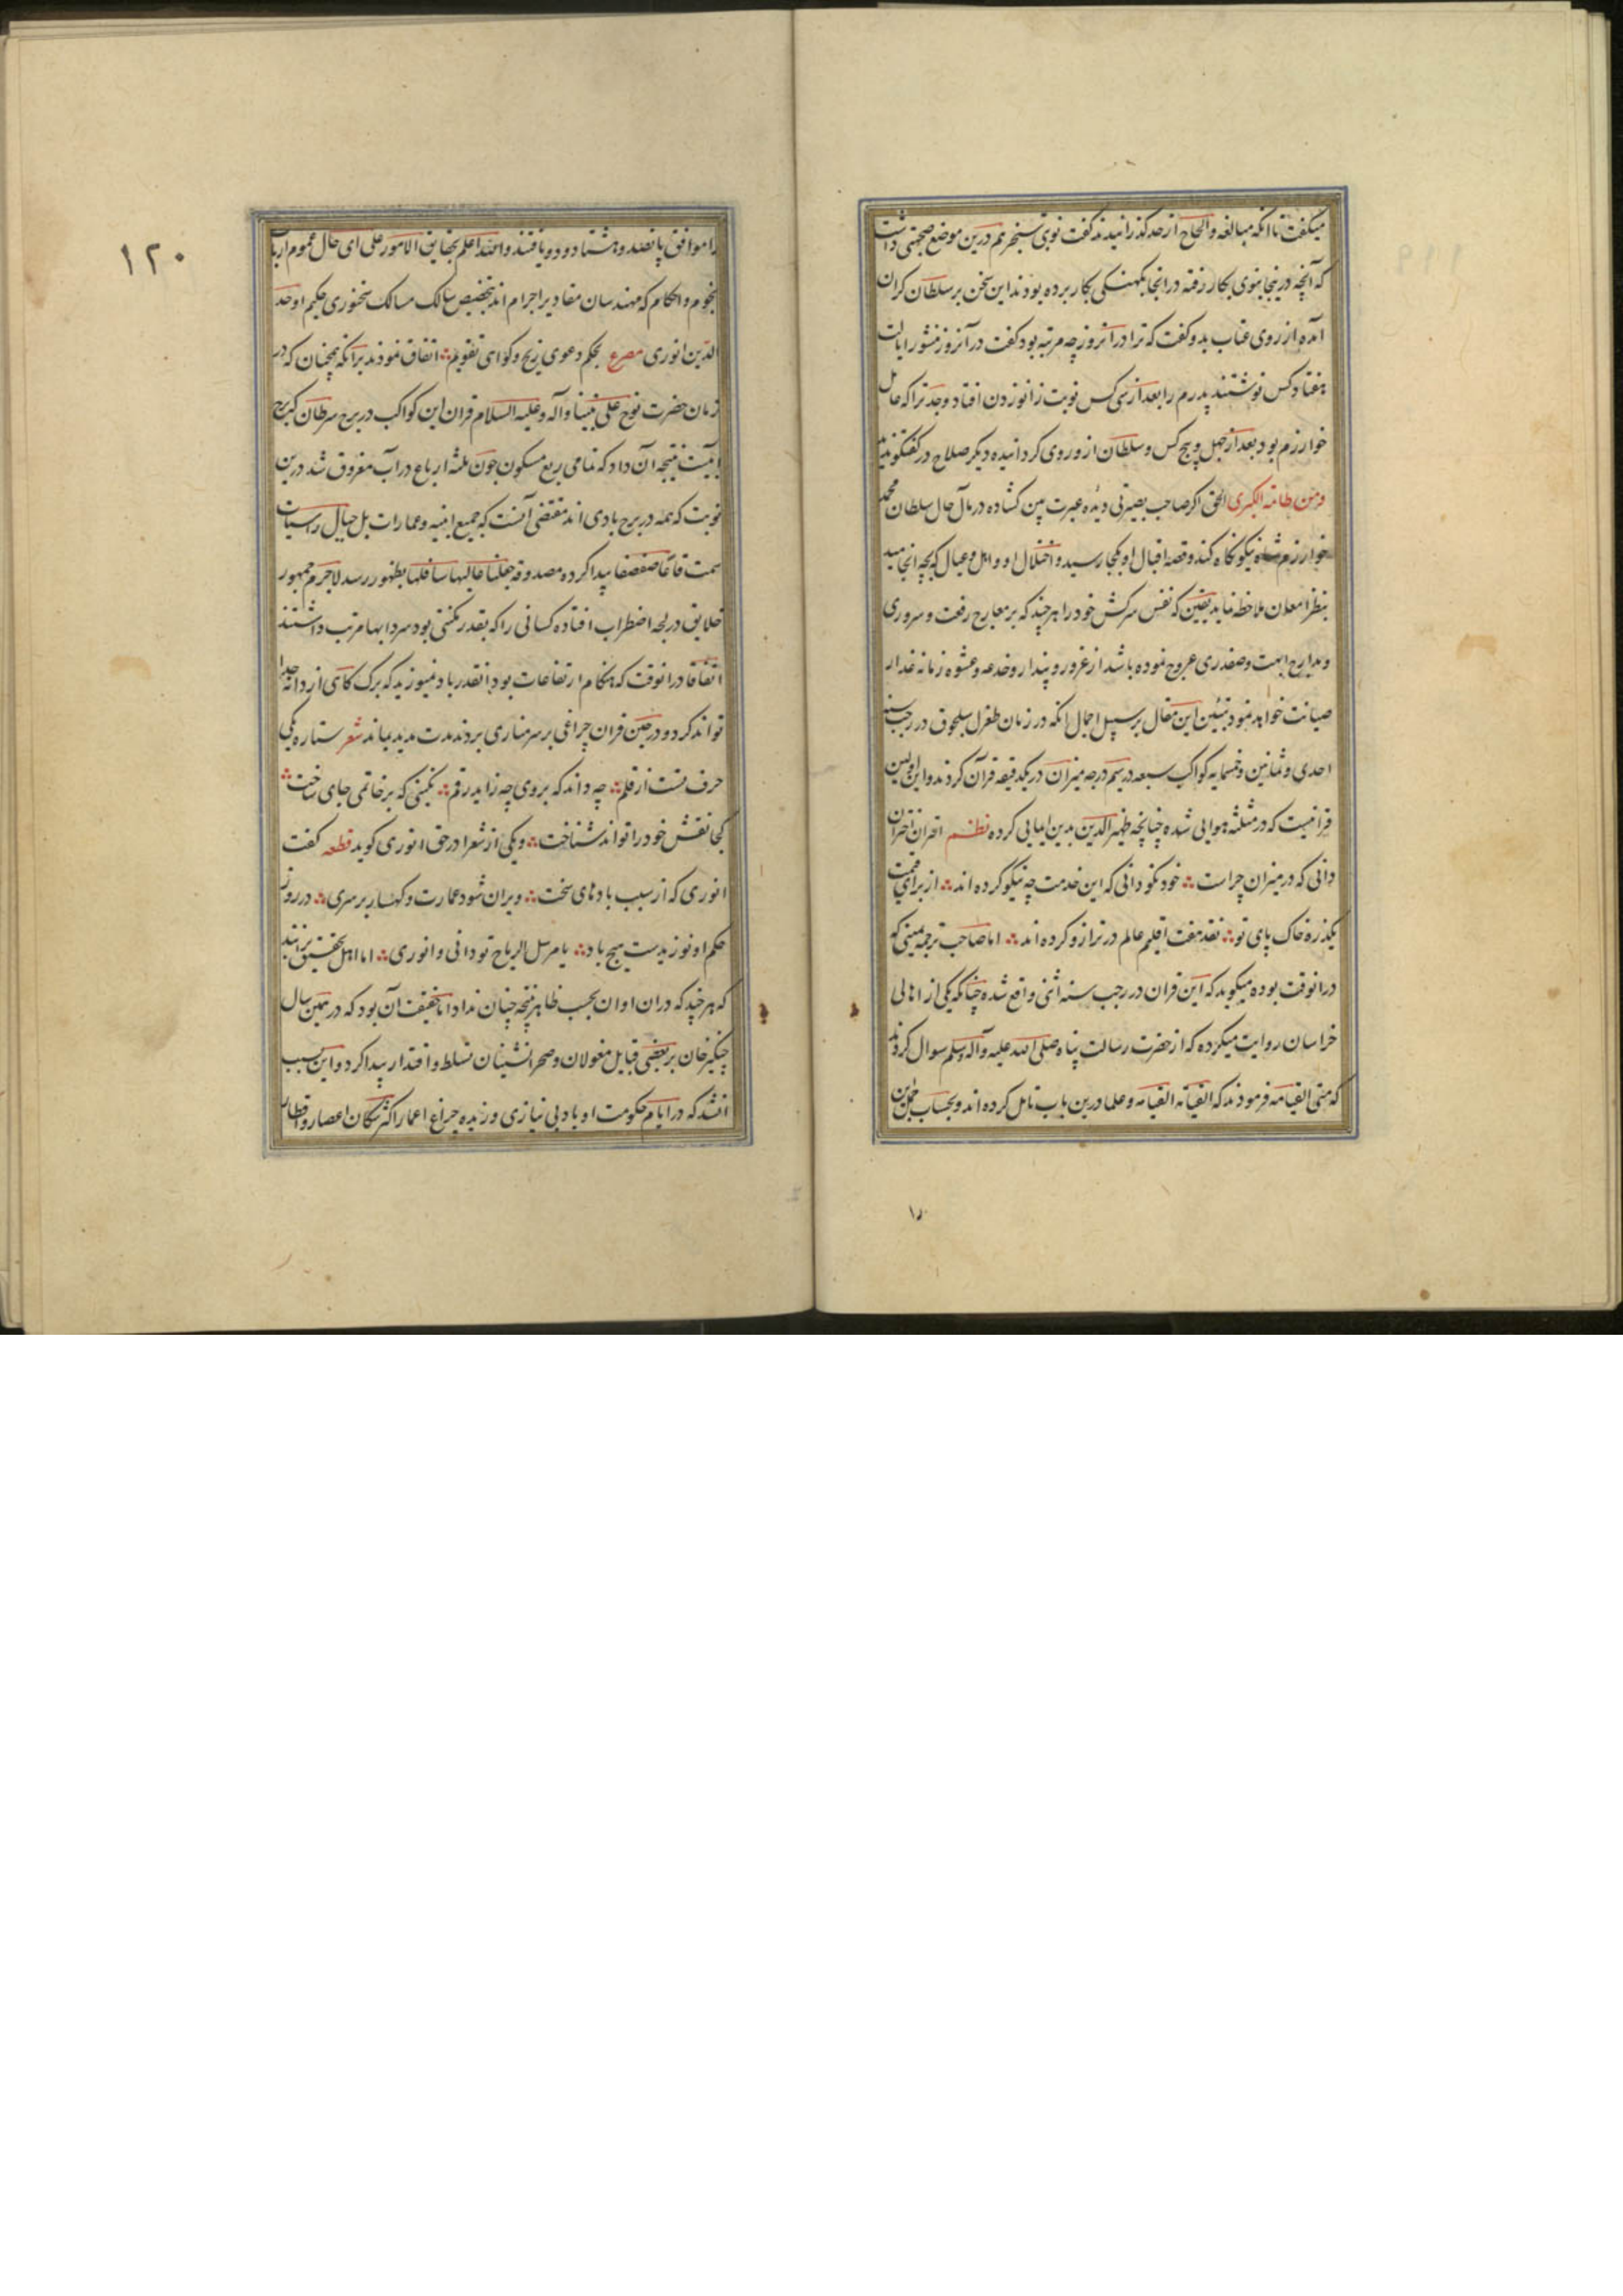 میکفت تا انکه مبالغه و الحاح از حد کذرانیدند کفت نوبتی سنجر هم درین موضع صحبتی داشت
که آنچه درینجا بنوی بکار رفته در انجا بکهنکی بکار برده بودند این سخن بر سلطان کران
آمده از روی عتاب بدو کفت که ترا در انروز چه مرتبه بود کفت در آنروز منشور ایالت
هفتاد کس نوشتند پدرم را بعد از سی کس نوبت زانو زدن افتاد و جد ترا که حاکم
خوارزم بود بعد از چهل و پنج کس و سلطان ازو روی کردانیده دیکر صلاح در کفتکو ندید
و من طامة الکبری الحق اکر صاحب بصیرتی دیده عبرت بین کشاده در مآل حال سلطان محمد
خوارزم شاه نیکو نکاه کند و قصه اقبال او بکجا رسید و اختلال او و اهل و عیال که بچه انجامید
بنظر امعان ملاحظه نماید یقین که نفس سرکش خود را هر چند که بر معارج رفعت و سروری
و مدارج ابهت و صفدری عروج نموده باشد از غرور و پندار و خدعه و عشوه زمانه غدار
صیانت خواهد نمود تبیین این مقال بر سبیل اجمال انکه در زمان طغرل سلجوق در رجب سنه
احدی و ثمانین و خمسمایه کواکب سبعه در سیم درجه میزان در یکدقیقه قرآن کردند و این اولین
قرانیست که در مثلثه هوایی شده چنانچه ظهیر الدین بدین ایمایی کرده نظم اقتران اختران
دانی که در میزان چراست خود نکو دانی که این خدمت چه نیکو کرده اند از برای قیمت
یکذره خاک پای تو نقد هفت اقلیم عالم در ترازو کرده اند اما صاحب ترجمه یمینی که
در انوقت بوده میکوید که این قران در رجب سنه اثنی واقع شده چنانکه یکی از اهالی
خراسان روایت میکرده که از حضرت رسالت پناه صلی الله علیه و آله و سلم سوال کردند
که متی القیامه فرمودند که القیامه القیامه و علما درین باب تامل کرده اند و بحساب جمل این
۱۲۰
را موافق پانصد و هشتاد و دو یافتند و الله اعلم بحقایق الامور علی ای حال عموم ارباب
نجوم و احکام که مهندسان مقادیر اجرام اند بتخصیص سالک مسالک سخنوری حکیم اوحد
الدین انوری مصرع بحکم دعوی زیج و کواهی تقویم اتفاق نمودند برانکه همچنان که در
زمان حضرت نوح علی نبینا و آله و علیه السلام قران این کواکب در برج سرطان که برج
آبیست نتیجه آن داد که تمامی ربع مسکون چون ثلثه ارباع در آب مغروق شد درین
نوبت که همه در برج بادی اند مقتضی آنست که جمیع ابنیه و عمارات بل جبال راسیات
سمت قاعا صفصفا پیدا کرده مصدوقه جعلنا عالیها سافلها بظهور رسد لاجرم جمهور
خلایق در لجه اضطراب افتاده کسانی را که بقدر مکنتی بود سردابها مرتب داشتند
اتفاقا در انوقت که هنکام ارتفاعات بود انقدر باد نمیوزید که برک کاهی از دانه جدا
تواند کرد و در حین قران چراغی بر سر مناری بردند مدت مدید بماند شعر ستاره یکی
حرف تست از قلم چه داند که بروی چه زاید رقم نکینی که بر خاتمی جای ساخت
کجا نقش خود را تواند شناخت و یکی از شعرا در حق انوری کوید قطعه کفت
انوری که از سبب بادهای سخت ویران شود عمارت و کهسار بر سری در روز
حکم او نوزیدست هیچ باد یا مرسل الریاح تو دانی و انوری اما اهل تحقیق برانند
که هر چند که دران اوان بحسب ظاهر نتیجه چنان نداد اما حقیقت آن بود که در همین سال
چنکیزخان بر بعضی قبایل مغولان و صحرانشینان تسلط و اقتدار پیدا کرد و این سبب
انشد که در ایام حکومت او باد بی نیازی وزیده چراغ اعمار اکثر سکان اعصار و اقطار